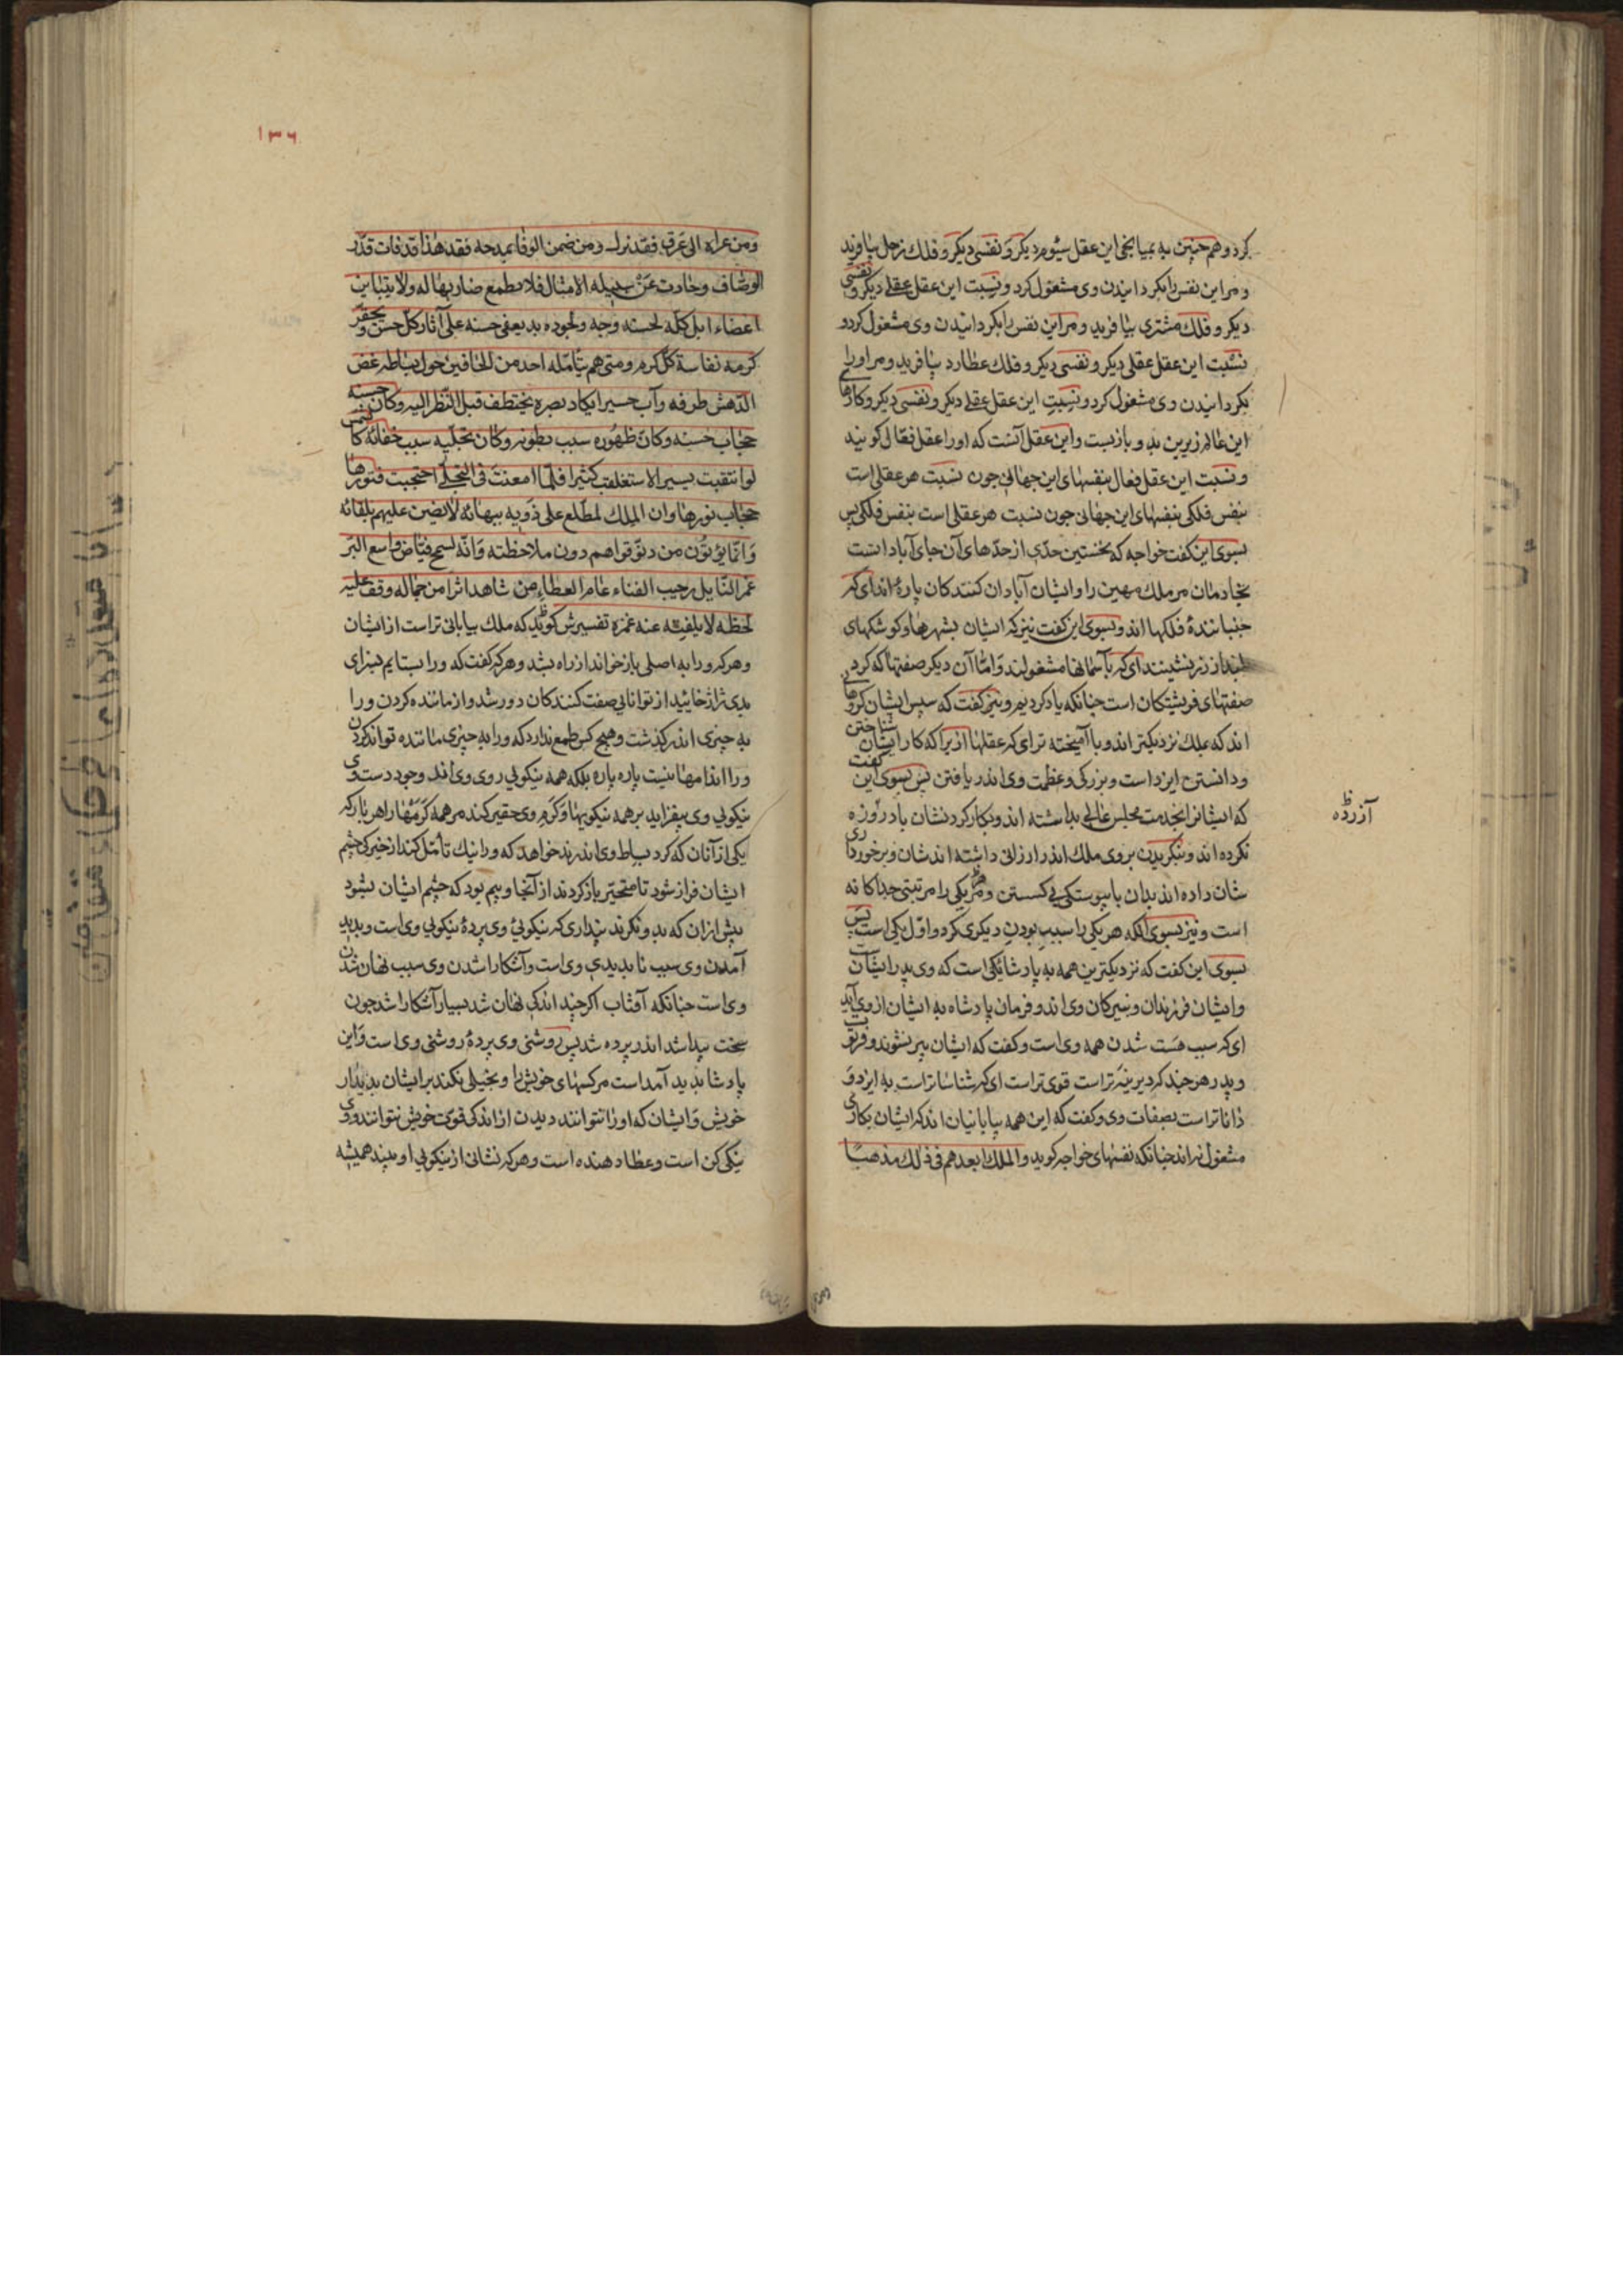 کرد و هم چنین به میانجی این عقل سیوم دیکر و نفسی دیکر و فلک زحل بیافرید
و مر این نفس را بکردانیدن وی مشغول کرد و نسبت این عقل عقلی دیکر و نفسی
دیکر و فلک مشتری بیافرید و مر این نفس را بکردانیدن وی مشغول کرد و
نسبت این عقل عقلی دیکر و نفسی دیکر و فلک عطارد بیافرید و مر او را
بکردانیدن وی مشغول کرد و نسبت این عقل عقلی دیکر و نفسی دیکر و کارهای
این عالم زیرین بدو بازبست و این عقل آنست که او را عقل فعال کویند
و نسبت این عقل فعال بنفسهای این جهانی چون نسبت هر عقلی است
بنفس فلکی بنفسهای این جهانی چون نسبت هر عقلی است بنفس فلکی پس
بسوی این کفت خواجه که نخستین حدی از حدهای آن جای آبادانست
بخادمان مر ملک مهین را و ایشان آبادان کنندکان باره اند ای که
جنبانندۀ فلکها اند و بسوی این کفت نیز که ایشان بشهرها و کوشکهای
بلند از زبر نشینند ای که بآسمانها مشغولند و اما آن دیکر صفتها که کرد
صفتهای فریشتکان است چنانکه یاد کردیم و نیز کفت که سپس ایشان کروهانی
اند که بملک نزدیکتر اند و با آمیخته تر ای که عقلها ازیرا که کار ایشان شناختن
و دانستن ایزد است و بزرکی و عظمت وی اندر یافتن پس بسوی این کفت
که ایشانرا بخدمت مجلس عالی بداشته اند و بکار کرد نشان یاد روزه
آزرده
نکرده اند و بنکریدن بروی ملک اندر ارزانی داشته اند شان و برخورداری
شان داده اند بدان با پیوستکی بی کسستن و هر یکی را مرتبتی جداکانه
است و نیز بسوی آنکه هر یکی را سبب بودن دیکری کرد و اول یکی است پس
بسوی این کفت که نزدیکترین همه به پادشا یکی است که وی پدر ایشانست
و ایشان فرزندان و نبیرکان وی اند و فرمان پادشاه به ایشان از وی آید
ای که سبب هست شدن همه وی است و کفت که ایشان پیر نشوند و فرتوت
و پدر هر چند که دیرینه تر است قوی تر است ای که شناسا تر است به ایزد و
دانا تر است بصفات وی و کفت که این همه بیابانیان اند که ایشان بکاری
مشغول نه اند چنانکه نفسهای خواجه کوید والملک ابعدهم فی ذلک مذهبا
١٣٦
ومن عزاه الی عرق فقد نزل ومن ضمن الوفا بمدحه فقد هذا قد فات قدر
الوصاف وحادت عن سبیله الامثال فلا یطمع ضاربها له ولا یتباین
اعضاء بل کله لحسنه وجه ولجوده ید یعفی حسنه علی آثار کل حسن ویحقر
کرمه نفاسة کل کرم ومتی هم بتأمله احد من الحافین حول بساطه غض
الدهش طرفه وآب حسیرا یکاد بصره یختطف قبل النظر الیه وکان حسنه
حجاب حسنه وکان ظهوره سبب بطونه وکان تجلیه سبب خفائه کالشمس
لو انتقبت یسیرا لاستعلنت کثیرا فلما امعنت فی التجلی احتجبت فنورها
حجاب نورها وان الملک لمطلع علی ذویه ببهائه لا یضن علیهم بلقائه
وانما یؤتون من دنو قواهم دون ملاحظته وانه لسمح فیاض واسع البر
غمر النایل رحیب الفناء عام العطاء من شاهد اثرا من جماله وقف علیه
لحظه لا یلفته عنه غمزه تفسیرش کوید که ملک بیابانی تر است از ایشان
و هر که ورا به اصلی باز خواند از راه بشد و هر که کفت که ورا بستایم بسزای
بدی ژاژ خایید از توانایی صفت کنندکان دور شد و از ماننده کردن ورا
به چیزی اندر کذشت و هیچ کس طمع ندارد که ورا به چیزی ماننده تواند کردن
ورا اندامها نیست پاره پاره بلکه همه نیکویی روی وی اند و جود دست وی
نیکویی وی بیفزاید بر همه نیکویها و کرم وی حقیر کند مر همه کرمها را هر بار که
یکی از آنان که کرد بساط وی اندرند خواهد که ورا نیک تأمل کند از خیرکی چشم
ایشان فراز شود تا متحیر باز کردند از آنجا و بیم بود که چشم ایشان بشود
پیش از آن که بدو نکرند پنداری که نیکوئی وی پردۀ نیکویی وی است و پدید
آمدن وی سبب ناپدیدی وی است و آشکارا شدن وی سبب نهان شدن
وی است چنانکه آفتاب اکر چند اندکی نهان شد بسیار آشکارا شد چون
سخت پیدا شد اندر پرده شد پس روشنی وی پردۀ روشنی وی است و این
پادشا پدید آمد است مر کسهای خویش را و بخیلی نکند بر ایشان بدیدار
خویش و ایشان که او را نتوانند دیدن از اندکی قوت خویش نتوانند و وی
نیکی کن است و عطا دهنده است و هر که نشانی از نیکویی او بیند همیشه